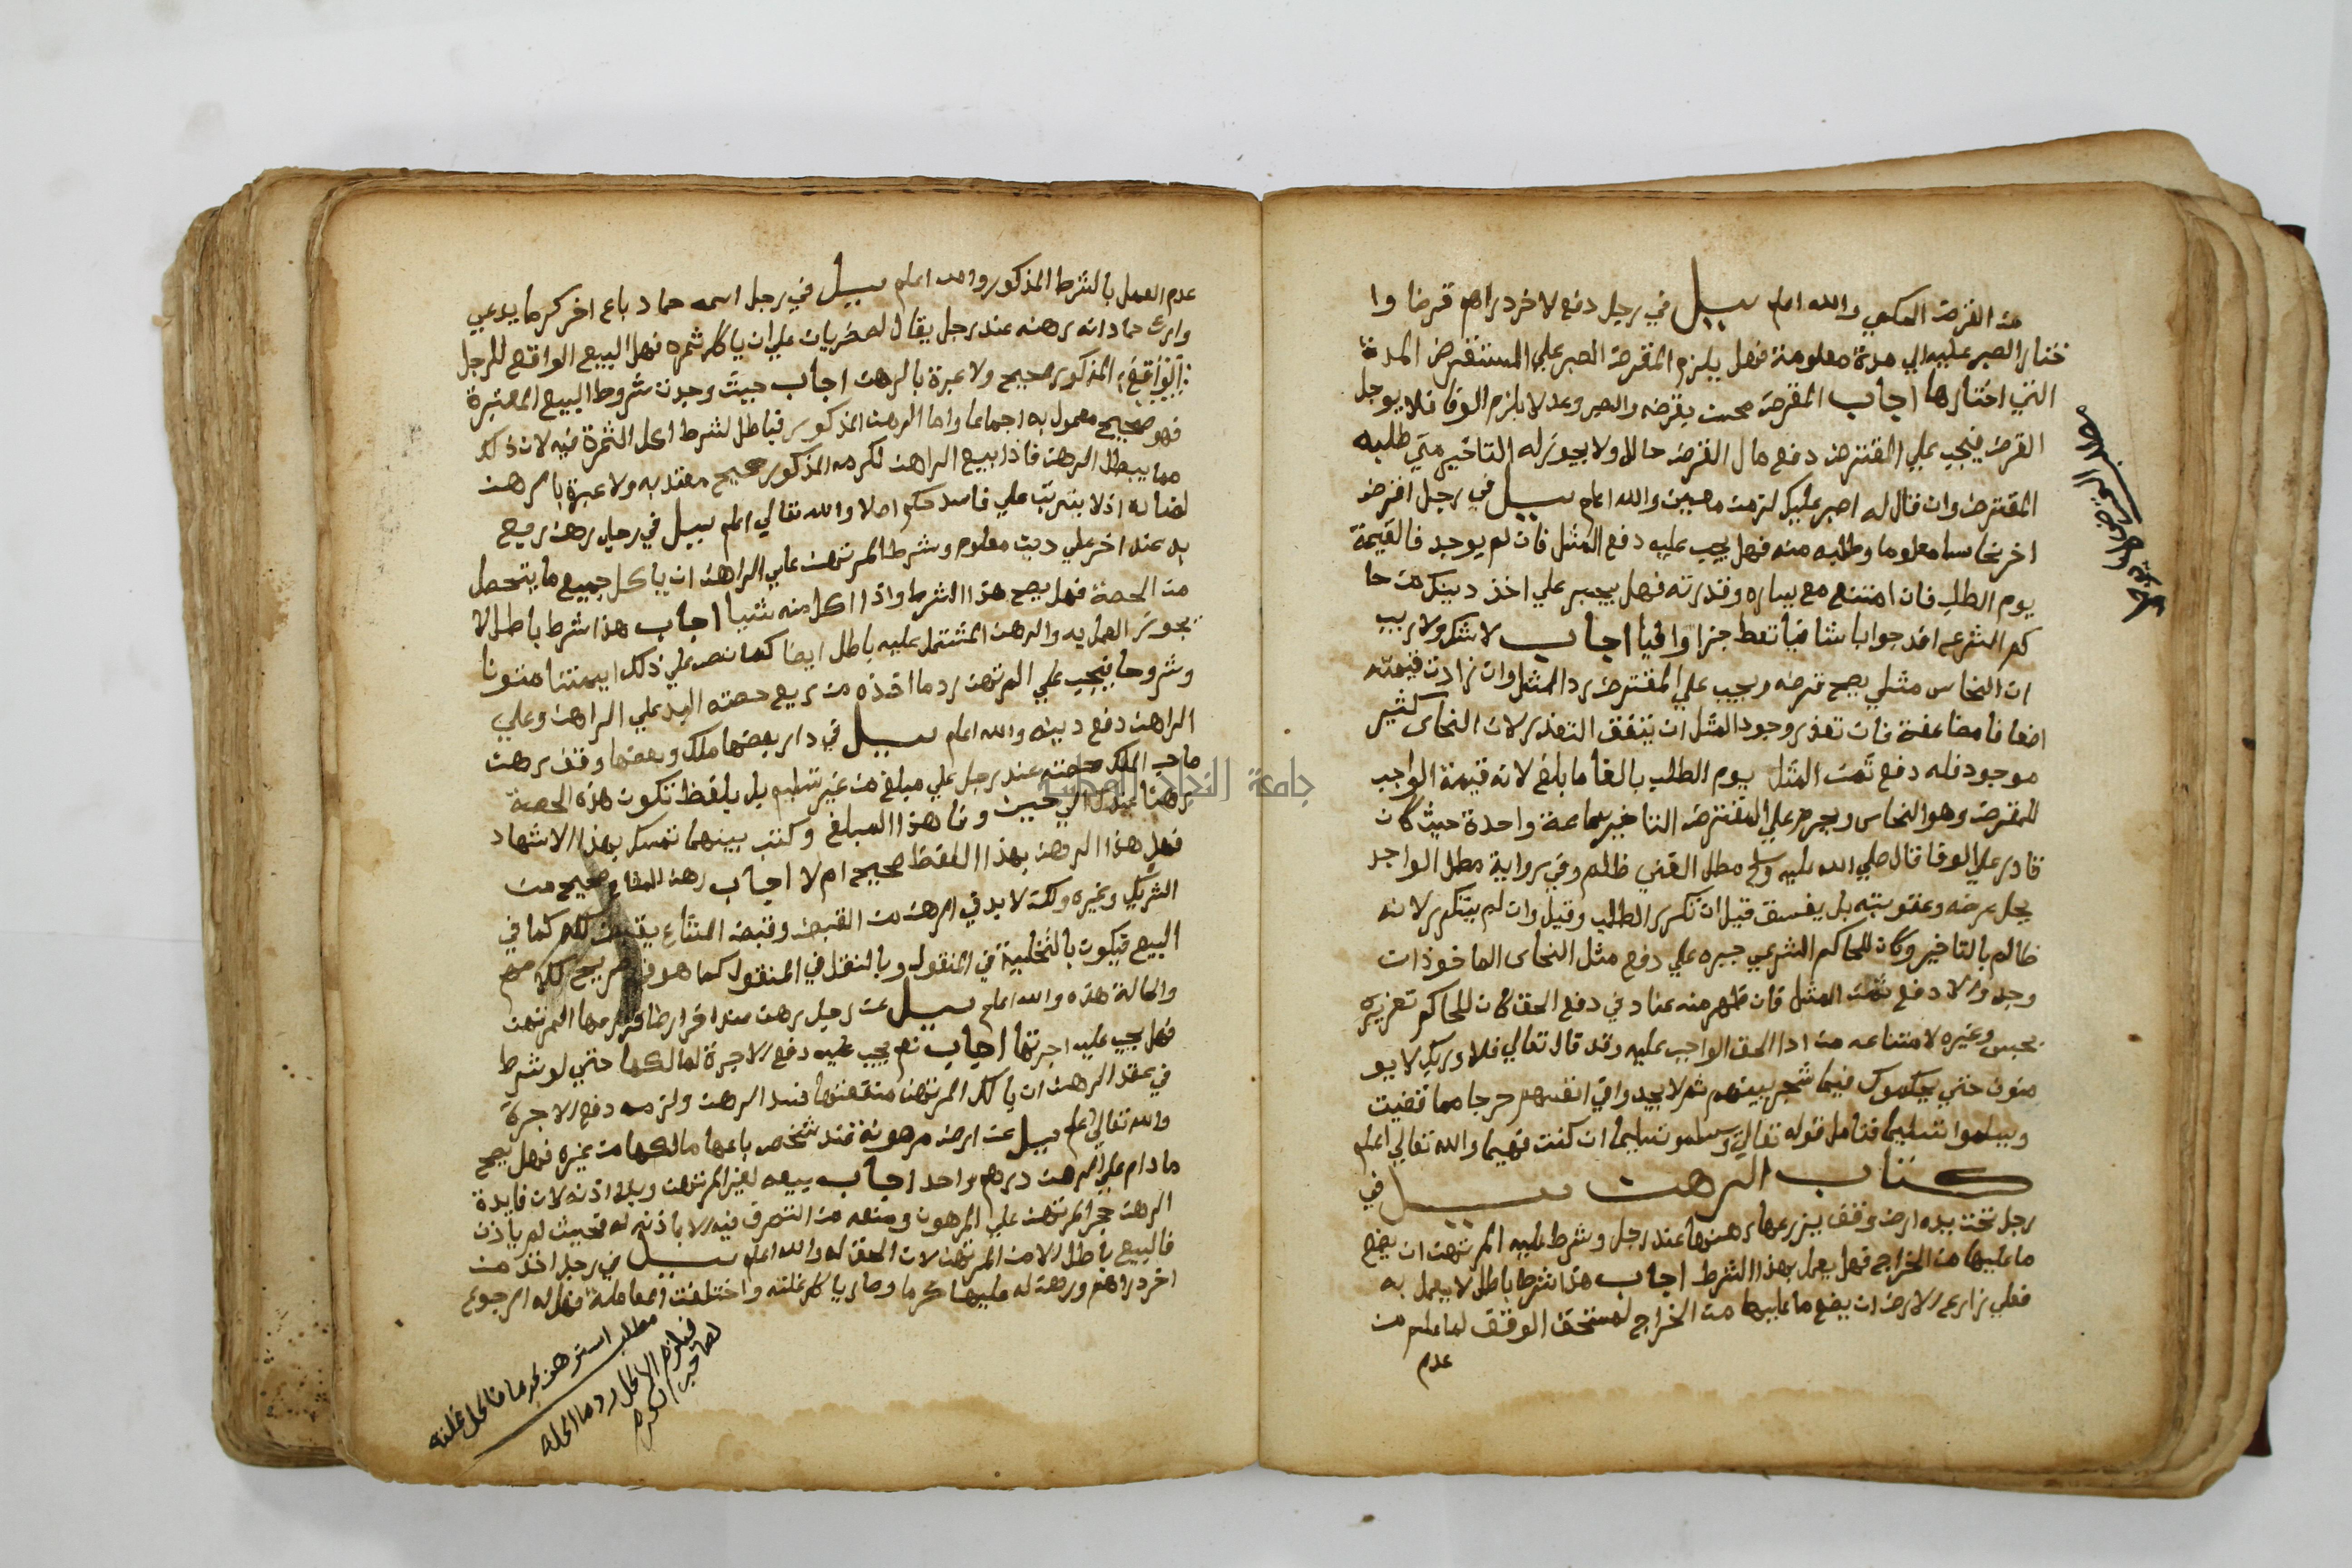 من القرض المكسي والله اعلم سيل في رجل دفع لاخر دراهم قرضا وا
ختار الصبر عليه الي مدة معلومة فهل يلزم المقرض الصبر علي المستقرض المدة
التي اختارها اجاب القرض محسن بقرضه والصبر وعد لا يلزم الوفا فلا يوجل
القرض فيجب علي المقترض دفع مال القرض حالا ولا يجوز له التاخير متي طلبه
المقترض وان قال له اصبر عليك لزمن معين والله اعلم سيل في رجل اقرض
اخر نحاسا معلوما وطلبه منه فهل يجب عليه دفع المثل فان لم يوجد فالقيمة
يوم الطلب فان امتنع مع يساره وقدرته فهل يجبر علي اخذ دينك من حا
كم الشرعي افد جوابا شافيا تعط جزا وافيا اجاب لا شك ولا ريب
ان النحاس مثلي يصح قرضه ويجب علي المقترض رد المثل وان زادت قيمته
اضعافا مضاعفة فان تعذر وجود المثل ان يتفق التعذر لان النحاس كثير
موجود فله دفع ثمن المثل يوم الطلب بالغا ما بلغ لانه قيمة الواجب
للمقرض وهو النحاس ويحرم علي المقترض التاخير ساعة واحدة حيث كان
قادر علي الوفا قال صلي الله عليه وسلم مطل الغني ظلم وفي رواية مطل الواجد
يحل عرضه وعقوبته بل يفسق قيل ان تكرر الطلب وقيل وان لم يتكرر لانه
ظالم بالتاخير وكان للحاكم الشرعي جبره علي دفع مثل النحاس الماخوذ ان
وجد والا دفع ثمن المثل فان ظهر منه عناد في دفع الحق كان للحاكم تعزيره
بحبس وغيره لامتناعه من ادا الحق الواجب عليه وقد قال تعالي فلا وربك لا يو
منون حتي يحكموك فيما شجر بينهم ثم لا يجدوا في انفسهم حرجا مما قضيت
ويسلموا تسليما فتامل قوله تعالي ويسلموا تسليما ان كنت فهيما والله تعالي اعلم
كتاب الرهن سيل في
رجل تحت يده ارض وقف يزرعها رهنها عند رجل وشرط عليه المرتهن ان يدفع
ما عليها من الخراج فهل يعمل بهذا الشرط اجاب هذا شرط باطل لا يعمل به
فعلي زارع الارض ان يدفع ما عليها من الخراج لمستحق الوقف لما علم من
عدم
عدم العمل بالشرط المذكور والله اعلم سيل في رجل اسمه حماد باع اخر كرما يدعي
وارث حماد انه رهنه عند رجل يقال له علي ان ياكل ثمره فهل البيع الواقع للرجل
المذكور صحيح ولا عبرة بالرهن اجاب حيث وجدت شروط البيع المعتبرة
فهو صحيح معمول به اجماعا واما الرهن المذكور فباطل لشرط اكل الثمرة فيه لان ذلك
مما يبطل الرهن فاذا بيع الراهن لكرمه المذكور صحيح معتد به ولا عبرة بالرهن
لفساده اذ لا يترتب علي فاسد حكم اصلا والله تعالي اعلم سيل في رجل رهن ربع
بد عند اخر علي دين معلوم وشرط المرتهن علي الراهن ان ياكل جميع ما يتحصل
من الحصة فهل يصح هذا الشرط واذا اكل منه شيا اجاب هذا شرط باطل لا
يجوز العمل به والرهن المشتمل عليه باطل ايضا كما نص علي ذلك ايمتنا متونا
وشروحا فيجب علي المرتهن رد ما اخذه من ريع حصته اليد علي الراهن وعلي
الراهن دفع دينه والله اعلم سيل في دار بعضها ملك وبعضها وقف رهن
صاحب الملك حصته عند رجل علي مبلغ من غير تسليم بل بلفظ تكون هذه الحصة
رهنا عندك الي حين وفا هذا المبلغ وكتب بينهما تمسك بهذا الاشهاد
فهل هذا الرهن بهذا اللفظ صحيح ام لا اجاب رهن المشاع صحيح من
الشريك وغيره ولكن لا بد في الرهن من القبض وقبض المشاع بقبض كله كما في
البيع فيكون بالتخلية في المنقول وبالنقل في المنقول كما هو في صريح كلامهم
والحالة هذه والله اعلم سيل عن رجل رهن عند اخر ارضا المرتهن
فهل يجب عليه اجرتها اجاب نعم يجب عليه دفع الاجرة لمالكها حتي لو شرط
في عقد الرهن ان ياكل المرتهن منفعتها فسد الرهن ولزمه دفع الاجرة
والله تعالي اعلم سيل عن ارض مرهونة عند شخص باعها مالكها من غيره فهل يصح
ما دام علي الرهن درهم واحد اجاب بيعه لغير المرتهن وبلا اذنه لان فايدة
الرهن حجر المرتهن علي المرهون ومنعه من التصرف فيه الا باذنه له فحيث لم ياذن
فالبيع باطل الا من المرتهن لان الحق له والله اعلم سيل في رجل اخذ من
اخر دراهم ورهن له عليها كرما وصار ياكل غلته واختلفت المعاملة فهل له الرجوع
مطلب استرهن كرما فاكل غلته
فيلزم الاكل رد ما اكله
لصاحب الكرم
جامعة النجاح الوطنية